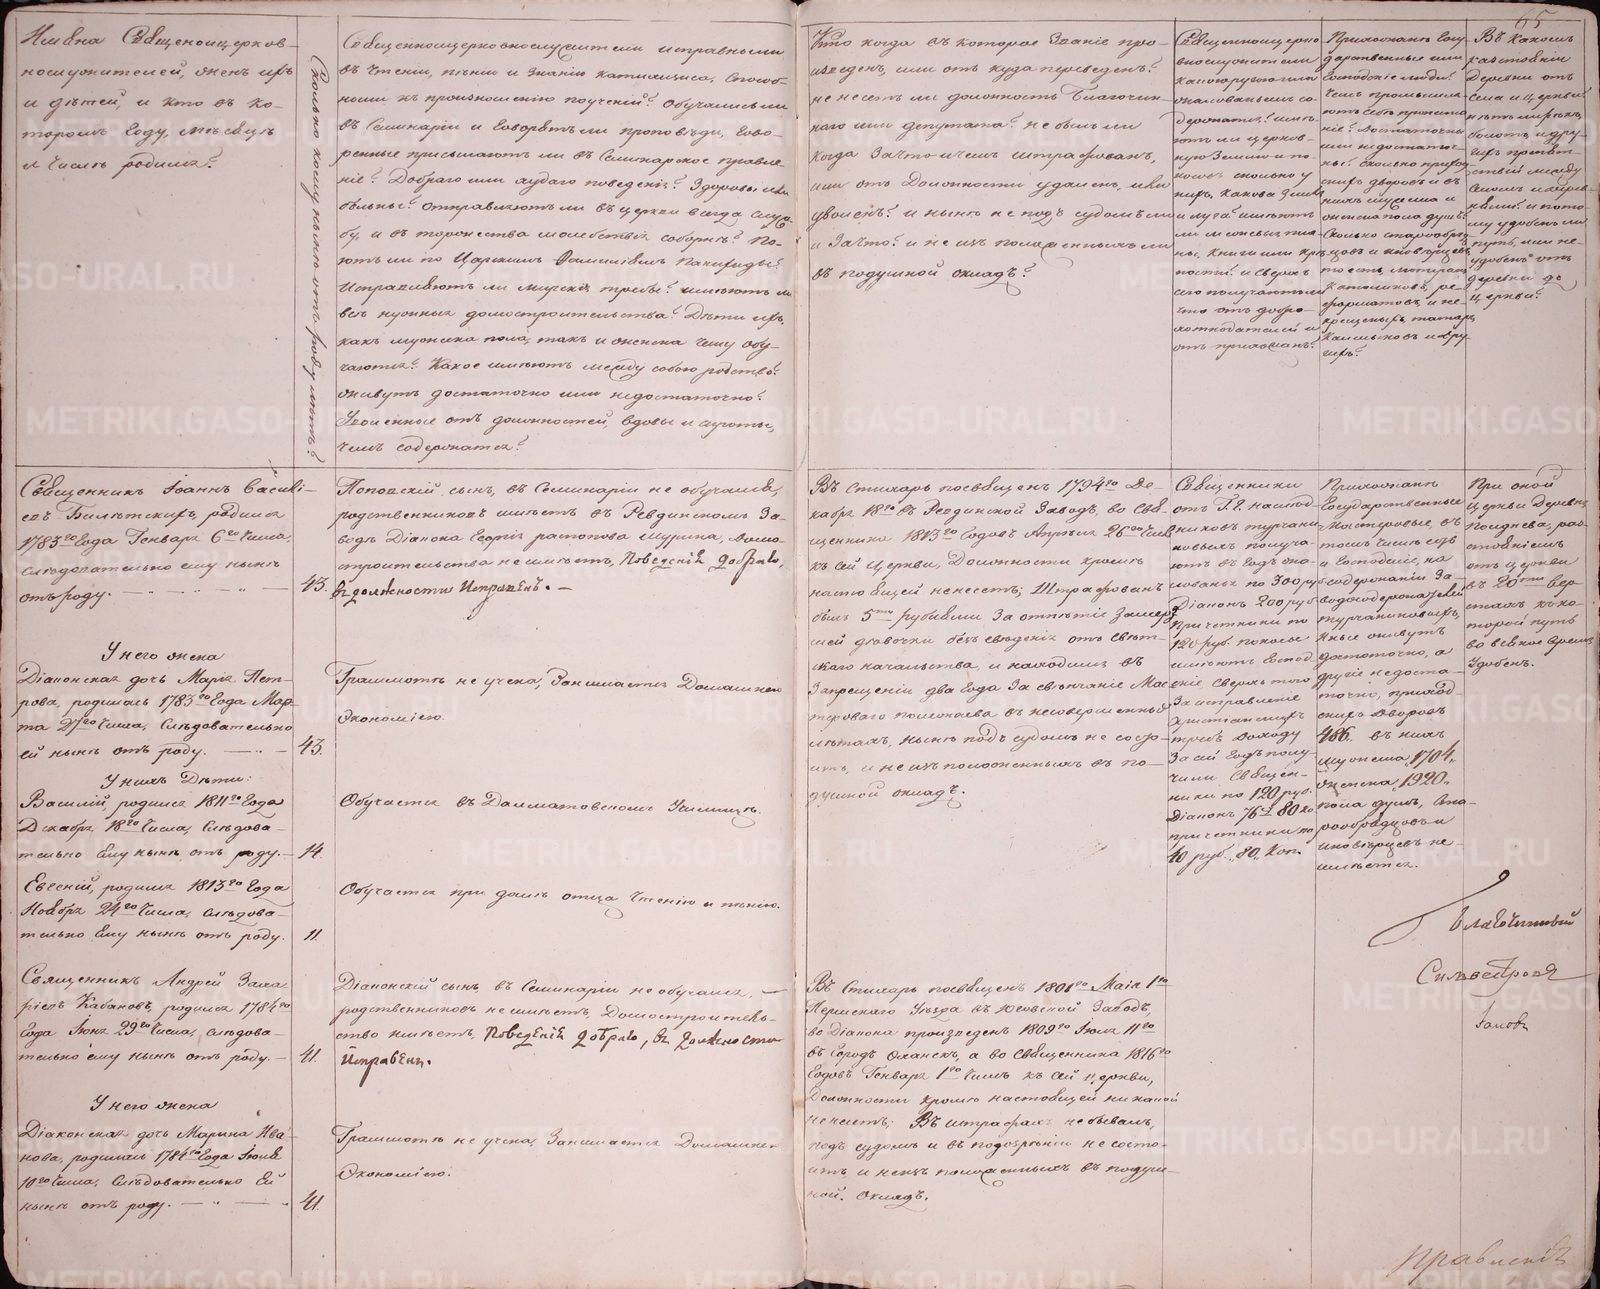 65
Имѣна Священноцерков-
нослужителей, женъ ихъ
и дѣтей, и кто въ ко-
торомъ году, мѣсяцѣ
и числѣ родился?
Сколько кому нынѣ отъ роду лѣтъ?
Священноцерковнослужители исправными
въ чтеніи, пѣніи и знаніи катихизиса, способ-
ными къ произношенію поученій? обучались ли
въ Семинаріи и говорятъ ли проповѣди, гово-
ренные присылаютъ ли въ Семинарское правле-
ніе? Добраго или худаго поведенія? Здоровы или
больные? отправляютъ ли въ церкви всегда служ-
бу, и въ торжества молебствія соборнѣ? По-
ютъ ли по Царскимъ Фамиліямъ Панихиды?
Исправляютъ ли мірскія требы? имѣютъ ли
всѣ нужныя домостроительства? Дѣти ихъ
какъ мужеска пола, такъ и женска чему обу-
чаются? Какое имѣютъ между собою родство?
живутъ достаточно или недостаточно?
Уволенные отъ должностей, вдовы и сироты,
чемъ содержатся?
Кто когда въ которое званіе про-
изведенъ, или отъ куда переведенъ?
не несетъ ли должность Благочин-
наго или депутата? не былъ ли
когда за что и чемъ штрафованъ,
или отъ должности удаленъ, или
уволенъ? и нынѣ не подъ судомъ ли
и за что? и не изъ положенныхъ ли
въ подушной окладъ?
Священноцерко-
внослужители
какою ругою или
жалованьемъ со-
держатся? имѣ-
ютъ ли церков-
ную землю и по-
косовъ сколько у
нихъ, какова земля
и луга? имѣютъ
ли межевыя пла-
ны, книги или крѣ-
пости? и сверхъ
сего получаютъ ли
что отъ добро-
хотнодателей и
отъ прихожанъ?
Прихожанѣ Госу-
дарственные или
Господскіе люди?
Чемъ промышля-
ютъ себѣ пропита-
ніе? достаточны
или недостаточ-
ны? сколько приход-
скихъ дворовъ и въ
нихъ мужеска и
женска пола душъ?
Сколько старообряд-
цовъ и иновѣрцевъ,
то есть, лютеранъ,
католиковъ, ре-
форматовъ, и не-
крещеныхъ татаръ,
калмыковъ и дру-
гихъ?
Въ какомъ
разстояніи
Деревни отъ
села и церкви?
нѣтъ ли рѣкъ,
болотъ и дру-
гихъ препят-
ствій между
селомъ и дерев-
нями? и пото-
му удобенъ ли
путь, или не-
удобенъ отъ
деревни до
церкви?
Священникъ Іоаннъ Василі-
евъ Билѣтскихъ, родился
1783го Года Генваря 6го числа,
слѣдовательно ему нынѣ
отъ роду. 43.
Поповскій сынъ, въ Семинаріи не обучался,
родственниковъ имѣетъ въ Ревдинскомъ За-
водѣ Діакона Георгія распопова шурина, домо-
строительства не имѣетъ, Поведенія добраго,
въ должности Исправенъ.
Въ Стихарь посвященъ 1794го Де-
кабря 18го въ Ревдинской Заводъ, во Свя-
щенника 1813го Годовъ Апрѣля 26го числа
къ сей Церкви, Должности кромѣ
настоящей не несетъ; Штрафованъ
былъ 5тью рублями за отпѣтіе замерз-
шей дѣвочки безъ свѣденія отъ свѣт-
скаго начальства, и находился въ
Запрещеніи два года за вѣнчаніе Мас-
тероваго Поможаева въ несовершенныхъ
лѣтахъ, нынѣ подъ судомъ не состо-
итъ, и не изъ положенныхъ въ по-
душной окладъ.
Священники
отъ Г. Г. наслѣд-
никовъ турчани-
новыхъ получа-
ютъ въ годъ жа-
лованья по 300 руб.
Діаконъ 200 руб.
Причетники по
120 руб. покосы
имѣютъ господ-
скіе сверхъ того
за исправленіе
христіанскихъ
требъ доходу
за сей годъ полу-
чили Священ-
ники по 120 руб.
Діаконъ 76 р 80 ко
причетники по
40 руб. 80 коп.
Прихожанѣ
Государственные
Мастеровые, въ
томъ числѣ изъ
и Господскіе, на
содержаніи за-
водосодержателей
турчаниновыхъ,
иные живутъ
достаточно, а
другіе недоста-
точно, приход-
скихъ Дворовъ
486. въ нихъ
мужеска „1704„
женска „1920„
пола душъ, ста-
рообрядцовъ и
иновѣрцевъ не-
имѣется.
При оной
церкви Деревня
Поиднева, раз-
стояніемъ
отъ церкви
въ 20ти вер-
стахъ къ ко-
торой путь
во всякое время
удобенъ.
У него жена
Діаконская дочь Марія Пет-
рова, родилась 1783го Года Мар-
та 27го числа, слѣдовательно
ей нынѣ отъ роду. 43.
Грамотѣ не учена, Занимается Домашнею
Экономіею.
У нихъ Дѣти:
Василій, родился 1811го Года
Декабря 18го числа, слѣдова-
тельно ему нынѣ отъ роду. 14.
Обучается въ Далматовскомъ Училищѣ.
Евгеній, родился 1813го Года
Ноября 24го числа, слѣдова-
тельно ему нынѣ отъ роду. 11.
Обучается при домѣ отца чтенію и пѣнію.
Благочинный
Сильвестровъ
Священникъ Андрей Заха-
ріевъ Кабановъ, родился 1784го
Года Іюня 29го числа, слѣдова-
тельно ему нынѣ отъ роду. 41.
Діаконскій сынъ въ Семинаріи не обучался,
родственниковъ не имѣетъ, Домостроитель-
ство имѣетъ, Поведенія добраго, въ должности
Исправенъ.
Въ Стихарь посвященъ 1801го Маія 1го
Пермскаго Уѣзда въ Юговской Заводъ,
во Діакона произведенъ 1809го Іюля 11го
въ Городъ Оханскъ, а во Священника 1816го
Годовъ Генваря 1го числа къ сей церкви,
Должности кромѣ настоящей никакой
не несетъ; Въ штрафахъ не бывалъ,
подъ судомъ и въ подозрѣніи не состо-
итъ, и не изъ положенныхъ въ подуш-
ной окладъ.
У него жена
Діаконская дочь Марина Ива-
нова, родилась 1784го Года Іюля
10го числа, слѣдовательно Ей
нынѣ отъ роду. 41.
Грамотѣ не учена, Занимается Домашнею
Экономіею.
METRIKI.GASO-URAL.RU